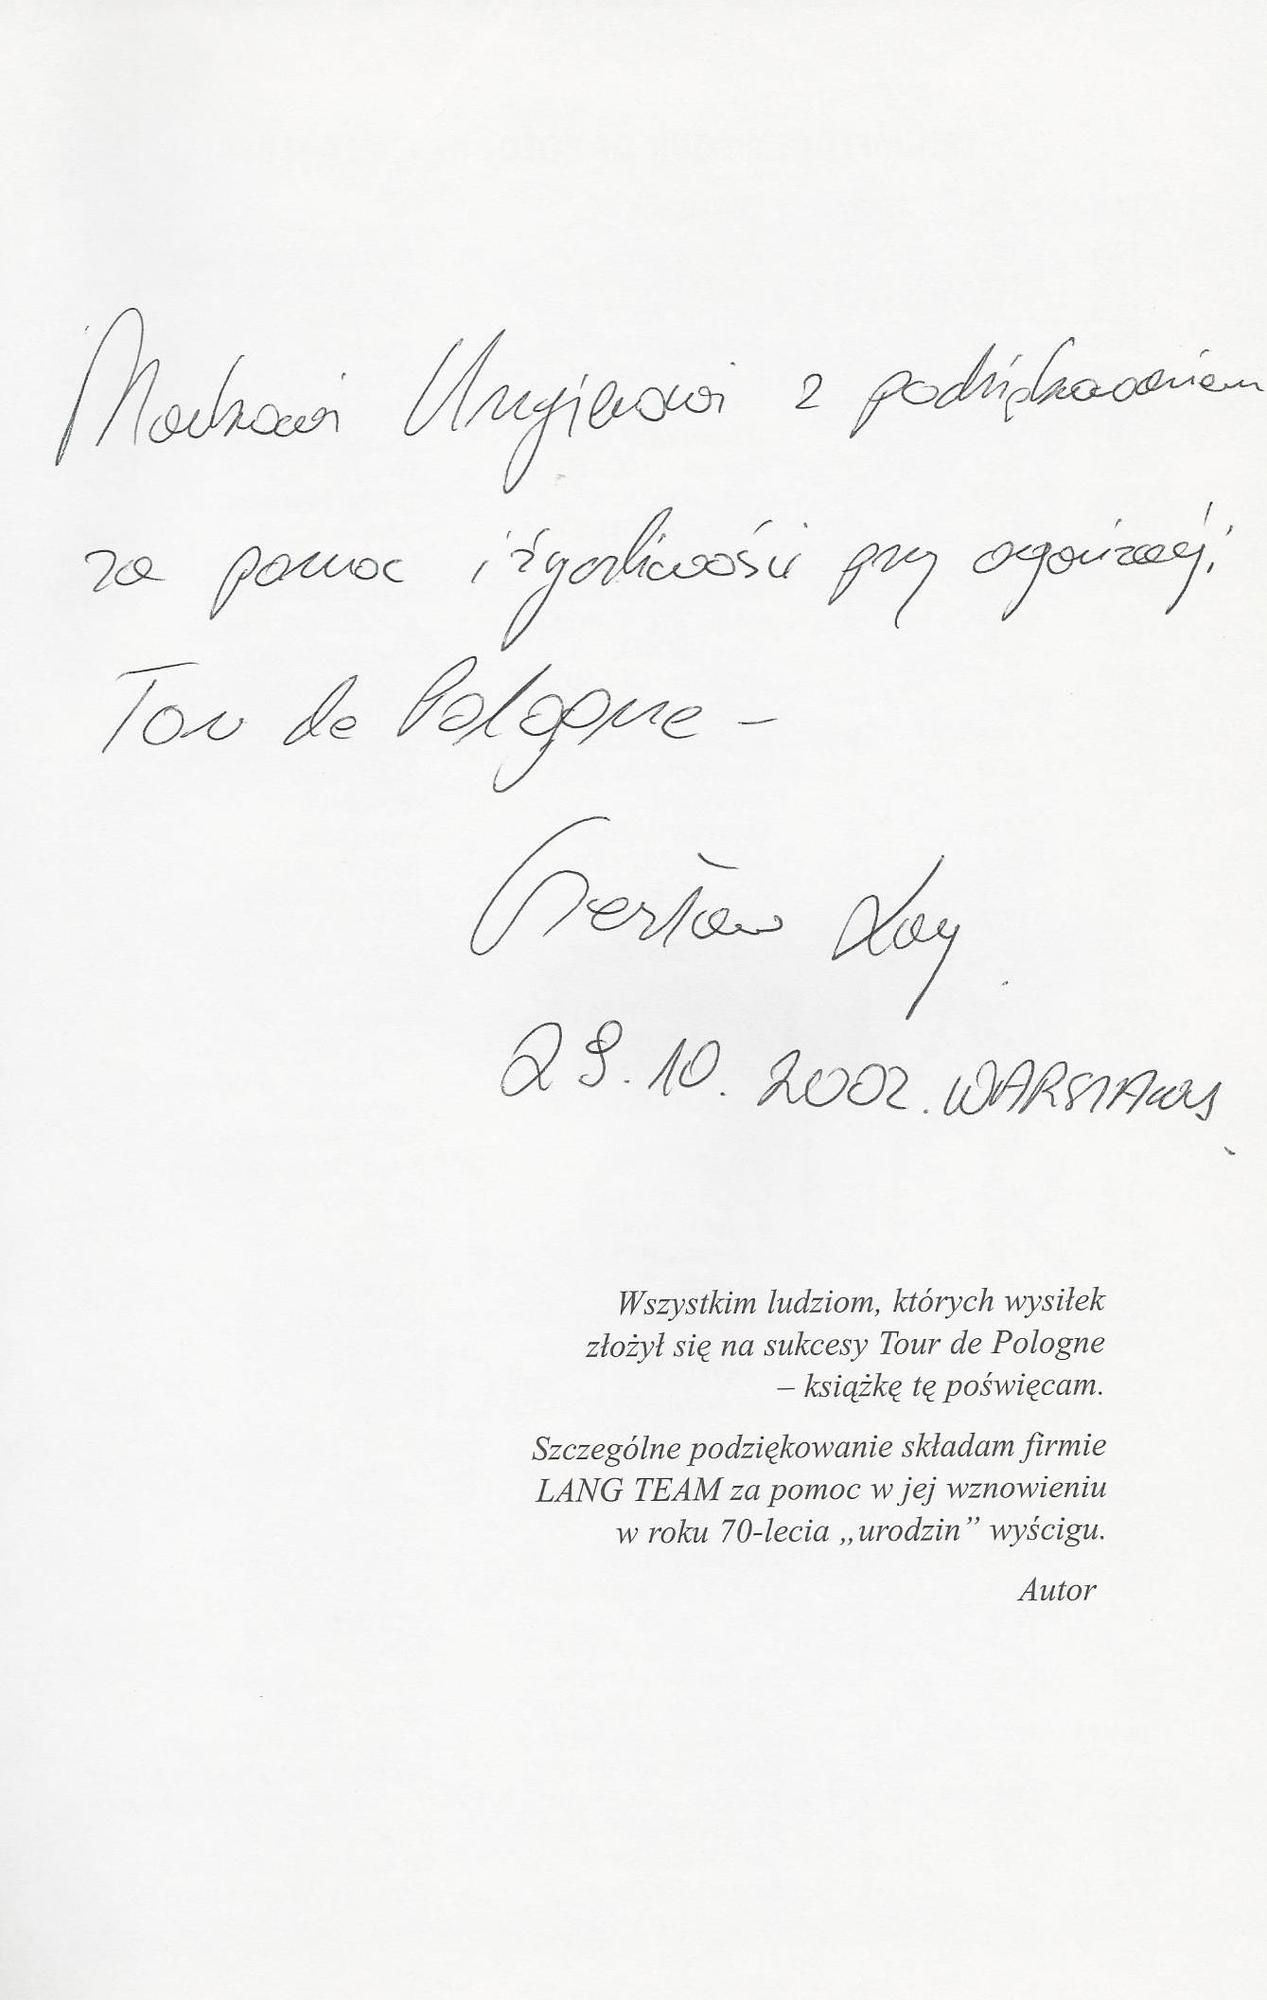 Markowi z podziękowaniem
za pomoc i życzliwość przy organizacji
Tour de Pologne –
Czesław Lang
29.10.2002. WARSZAWA
Wszystkim ludziom, których wysiłek
złożył się na sukcesy Tour de Pologne
– książkę tę poświęcam.
Szczególne podziękowanie składam firmie
LANG TEAM za pomoc w jej wznowieniu
w roku 70-lecia „urodzin” wyścigu.
Autor